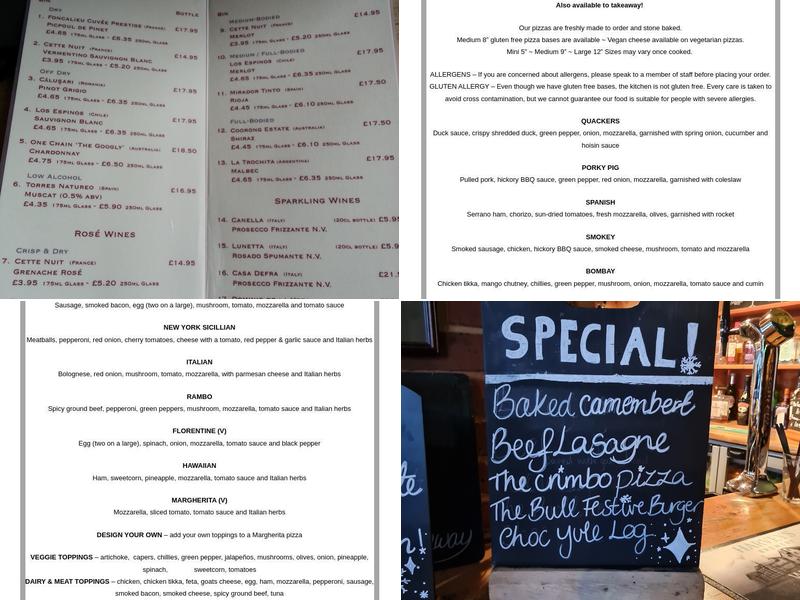 DRY
BOTTLE
1. FONCALIEU CUVÉE PRESTIGE (FRANCE)
PICPOUL DE PINET £17.95
£4.65 175ML GLASS - £6.35 250ML GLASS
2. CETTE NUIT (FRANCE) £14.95
VERMENTINO SAUVIGNON BLANC
£3.95 175ML GLASS - £5.20 250ML GLASS
OFF DRY
3. CĂLUŞARI (ROMANIA) £17.95
PINOT GRIGIO
£4.65 175ML GLASS - £6.35 250ML GLASS
4. LOS ESPINOS (CHILE) £17.95
SAUVIGNON BLANC
£4.65 175ML GLASS - £6.35 250ML GLASS
5. ONE CHAIN 'THE GOOGLY' (AUSTRALIA) £18.50
CHARDONNAY
£4.75 175ML GLASS - £6.50 250ML GLASS
LOW ALCOHOL
6. TORRES NATUREO (SPAIN) £16.95
MUSCAT (0.5% ABV)
£4.35 175ML GLASS - £5.90 250ML GLASS
ROSÉ WINES
CRISP & DRY
7. CETTE NUIT (FRANCE) £14.95
GRENACHE ROSÉ
£3.95 175ML GLASS - £5.20 250ML GLASS
BIN
MEDIUM-BODIED
9. CETTE NUIT (FRANCE) £14.95
MERLOT
£3.95 175ML GLASS - £5.20 250ML GLASS
MEDIUM / FULL-BODIED
10. LOS ESPINOS (CHILE) £17.95
MERLOT
£4.65 175ML GLASS - £6.35 250ML GLASS
11. MIRADOR TINTO (SPAIN) £17.50
RIOJA
£4.45 175ML GLASS - £6.10 250ML GLASS
FULL-BODIED
12. COORONG ESTATE (AUSTRALIA) £17.50
SHIRAZ
£4.45 175ML GLASS - £6.10 250ML GLASS
13. LA TROCHITA (ARGENTINA) £17.95
MALBEC
£4.65 175ML GLASS - £6.35 250ML GLASS
SPARKLING WINES
14. CANELLA (ITALY) (20CL BOTTLE) £5.95
PROSECCO FRIZZANTE N.V.
15. LUNETTA (ITALY) (20CL BOTTLE) £5.9
ROSADO SPUMANTE N.V.
16. CASA DEFRA (ITALY) £21.
PROSECCO FRIZZANTE N.V.
Also available to takeaway!
Our pizzas are freshly made to order and stone baked.
Medium 8" gluten free pizza bases are available ~ Vegan cheese available on vegetarian pizzas.
Mini 5" ~ Medium 9" ~ Large 12" Sizes may vary once cooked.
ALLERGENS – If you are concerned about allergens, please speak to a member of staff before placing your order.
GLUTEN ALLERGY – Even though we have gluten free bases, the kitchen is not gluten free. Every care is taken to
avoid cross contamination, but we cannot guarantee our food is suitable for people with severe allergies.
QUACKERS
Duck sauce, crispy shredded duck, green pepper, onion, mozzarella, garnished with spring onion, cucumber and
hoisin sauce
PORKY PIG
Pulled pork, hickory BBQ sauce, green pepper, red onion, mozzarella, garnished with coleslaw
SPANISH
Serrano ham, chorizo, sun-dried tomatoes, fresh mozzarella, olives, garnished with rocket
SMOKEY
Smoked sausage, chicken, hickory BBQ sauce, smoked cheese, mushroom, tomato and mozzarella
BOMBAY
Chicken tikka, mango chutney, chillies, green pepper, mushroom, onion, mozzarella, tomato sauce and cumin
Sausage, smoked bacon, egg (two on a large), mushroom, tomato, mozzarella and tomato sauce
NEW YORK SICILLIAN
Meatballs, pepperoni, red onion, cherry tomatoes, cheese with a tomato, red pepper & garlic sauce and Italian herbs
ITALIAN
Bolognese, red onion, mushroom, tomato, mozzarella, with parmesan cheese and Italian herbs
RAMBO
Spicy ground beef, pepperoni, green peppers, mushroom, mozzarella, tomato sauce and Italian herbs
FLORENTINE (V)
Egg (two on a large), spinach, onion, mozzarella, tomato sauce and black pepper
HAWAIIAN
Ham, sweetcorn, pineapple, mozzarella, tomato sauce and Italian herbs
MARGHERITA (V)
Mozzarella, sliced tomato, tomato sauce and Italian herbs
DESIGN YOUR OWN – add your own toppings to a Margherita pizza
VEGGIE TOPPINGS – artichoke, capers, chillies, green pepper, jalapeños, mushrooms, olives, onion, pineapple,
spinach, sweetcorn, tomatoes
DAIRY & MEAT TOPPINGS – chicken, chicken tikka, feta, goats cheese, egg, ham, mozzarella, pepperoni, sausage,
smoked bacon, smoked cheese, spicy ground beef, tuna
SPECIAL!
Baked camembert
Beef Lasagne
The crimbo pizza
The Bull Festive Burger
Choc Yule Log